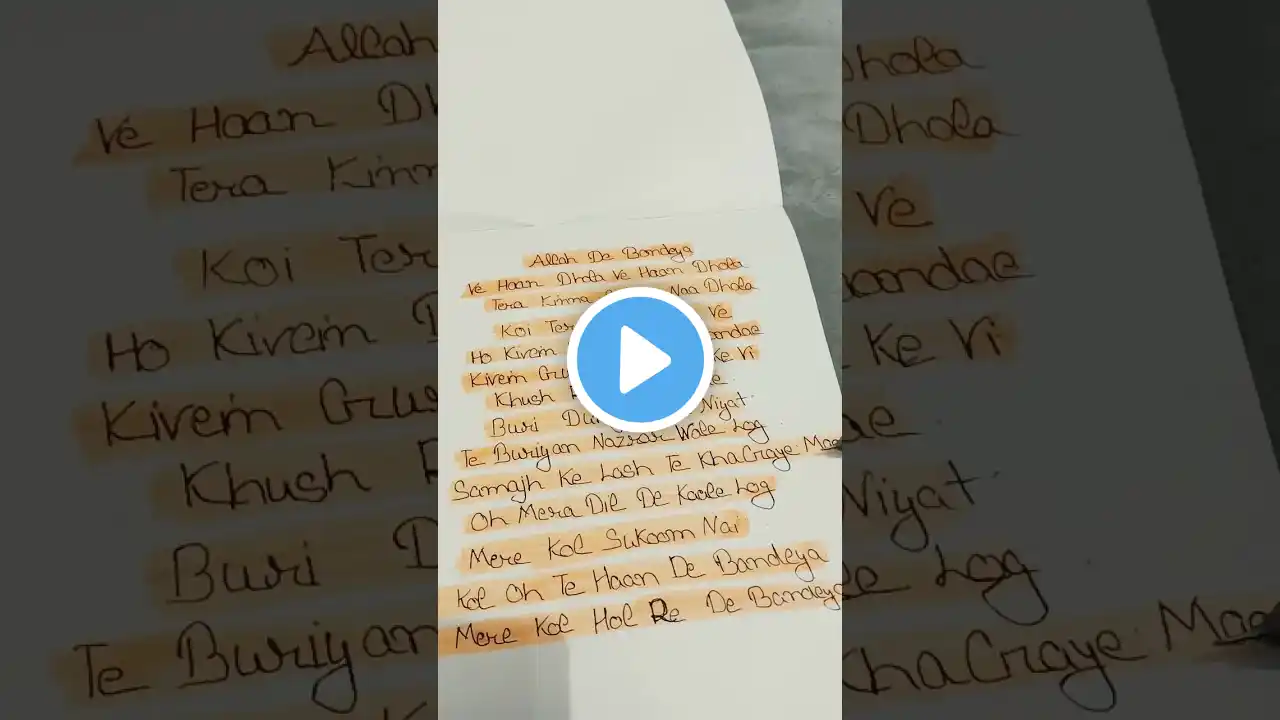 Allah De Bandeya
Ve Haan Dhola Ve Haan Dhola
Tera Kinna Naa Dhola
Koi Ter Ve
Ho Kivein andae
Kivein Gu Ke Vi
Khush ae
Buri Du Niyat
Te Buriyan Nazraar Wale Log
Samajh Ke Lash Te KhaGraye Mae
Oh Mera Dil De Kaale Log
Mere Kol Sukoon Nai
Kol Oh Te Haan De Bandeya
Mere Kol Hol Re De Bandeya